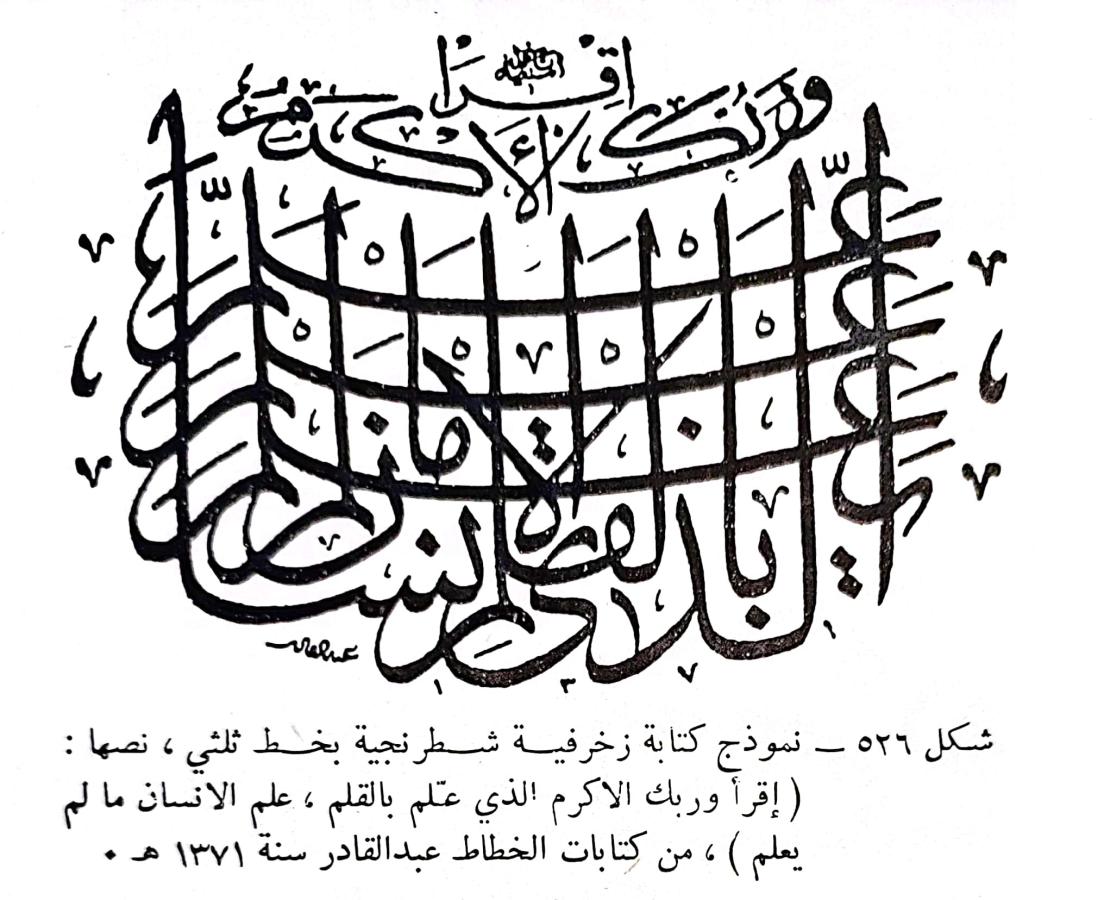 اقرأ
وربك الأكرم
الذي علم بالقلم
علم الإنسان ما لم يعلم
١٣٧١
شكل ٥٢٦ ــ نموذج كتابة زخرفيــة شطرنجية بخـط ثلثي ، نصها :
( إقرأ وربك الاكرم الذي عـّلم بالقلم ، علم الانسان ما لم
يعلم ) ، من كتابات الخطاط عبدالقادر سنة ١٣٧١ هـ ٠